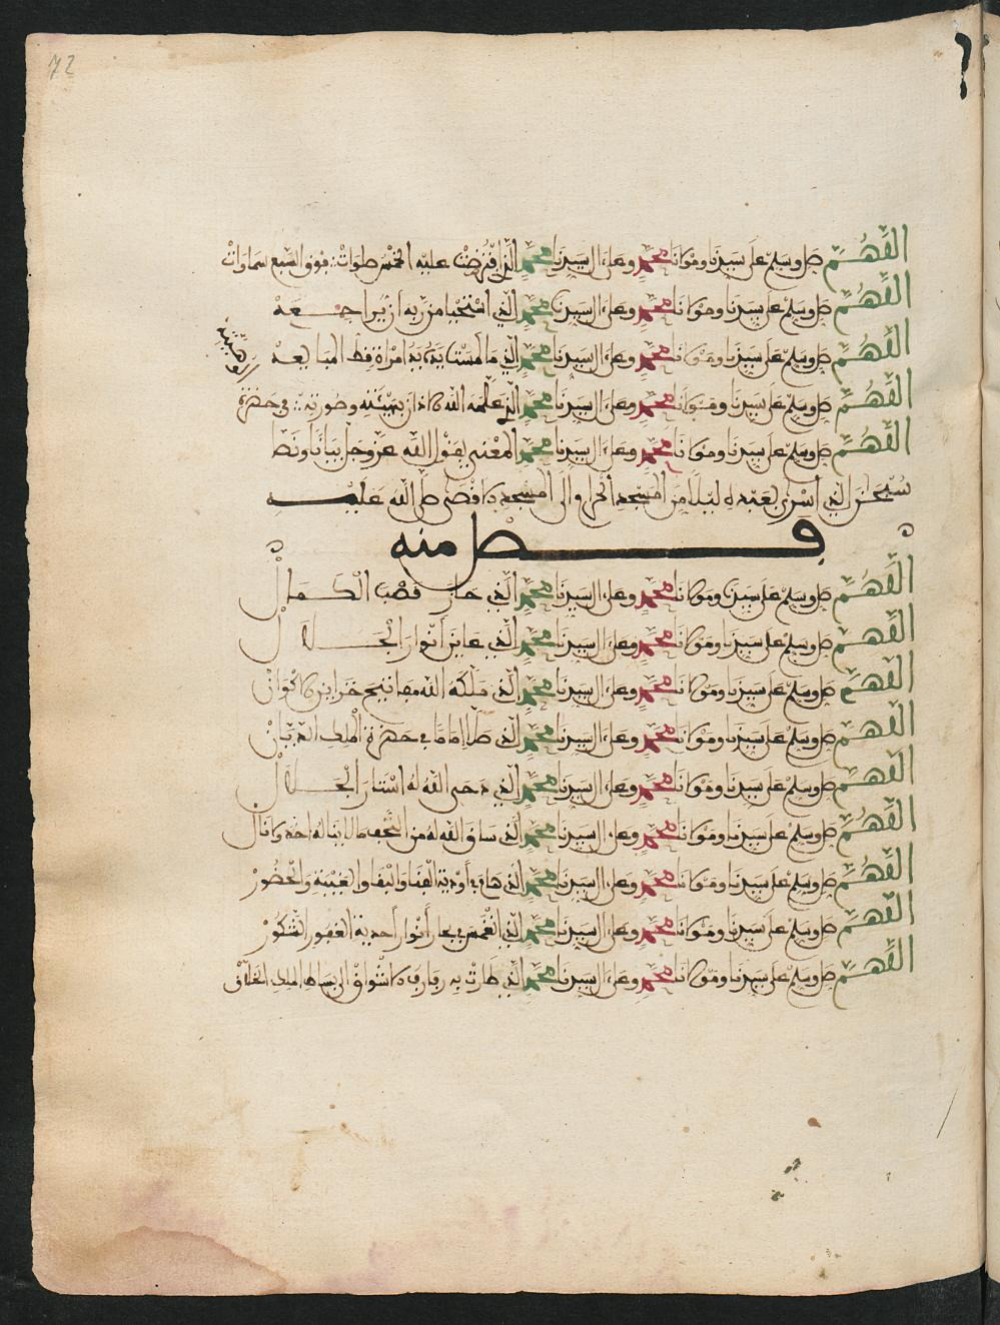 72
اللهم صل وسلم على سيدنا ومولانا محمد وعلى ال سيدنا محمد الذي افترضت عليه الخمس صلوات فوق السبع سماوات
اللهم صل وسلم على سيدنا ومولانا محمد وعلى ال سيدنا محمد الذي استحيا من ربه ان يراجعه
اللهم صل وسلم على سيدنا ومولانا محمد وعلى ال سيدنا محمد الذي ما مست يده يد امراة قط
اللهم صل وسلم على سيدنا ومولانا محمد وعلى ال سيدنا محمد الذي علمه الله الاذان بهيئته وصورته في حضرة
اللهم صل وسلم على سيدنا ومولانا محمد وعلى ال سيدنا محمد المعني بقول الله عز وجل بيانا ونصا
سبحن الذي اسرى بعبده ليلا من المسجد الحرام الى المسجد الاقصى صلى الله عليه
فصل منه
اللهم صل وسلم على سيدنا ومولانا محمد وعلى ال سيدنا محمد الذي حاز قصب الكمال
اللهم صل وسلم على سيدنا ومولانا محمد وعلى ال سيدنا محمد الذي عاين أنوار الجلال
اللهم صل وسلم على سيدنا ومولانا محمد وعلى ال سيدنا محمد الذي ملكه الله مفاتيح خزاين الاكوان
اللهم صل وسلم على سيدنا ومولانا محمد وعلى ال سيدنا محمد الذي صلى إماما في حضرة الملك الديان
اللهم صل وسلم على سيدنا ومولانا محمد وعلى ال سيدنا محمد الذي الله له استار الجلال
اللهم صل وسلم على سيدنا ومولانا محمد وعلى ال سيدنا محمد الذي ساق الله له من التحف ما لا يناله احد
اللهم صل وسلم على سيدنا ومولانا محمد وعلى ال سيدنا محمد الذي هام في أودية الفنا والبقا والغيبة والحضور
اللهم صل وسلم على سيدنا ومولانا محمد وعلى ال سيدنا محمد الذي انغمس في بحار أنوار أحدية الغفور الشكور
اللهم صل وسلم على سيدنا ومولانا محمد وعلى ال سيدنا محمد الذي طارت به الاشواق الى بساط الملك الخلاق